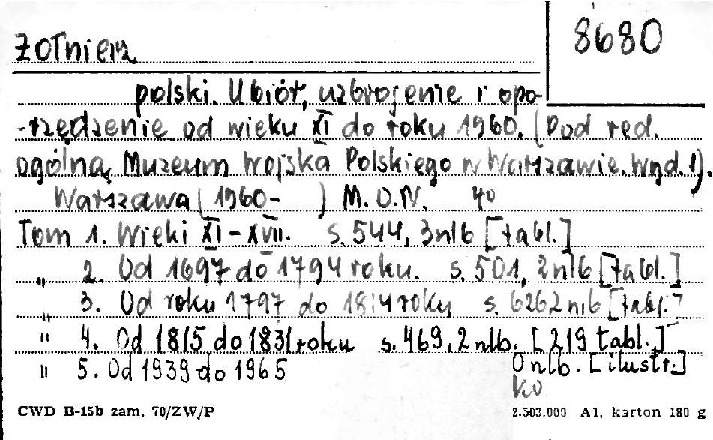 8680
Żołnierz
polski. Ubiór, uzbrojenie i opo-
-rzędzenie od wieku XI do roku 1960. (Pod red.
ogólną Muzeum Wojska Polskiego w Warszawie. Wyd. 1).
Warszawa (1960- ) M.O.N. 4o
Tom 1. Wieki XI-XVII. s. 544, 3 nlb [tabl.]
„ 2. Od 1697 do 1794 roku. s. 501, 2 nlb [tabl.]
„ 3. Od roku 1797 do 1814 roku s. 626 2 nlb [tabl.]
" 4. Od 1815 do 1831 roku s. 469, 2 nlb. [219 tabl.]
" 5. Od 1939 do 1965 0 nlb. [ilustr.]
CWD B-15b zam. 70/ZW/P 2.503.000 A1. karton 180 g